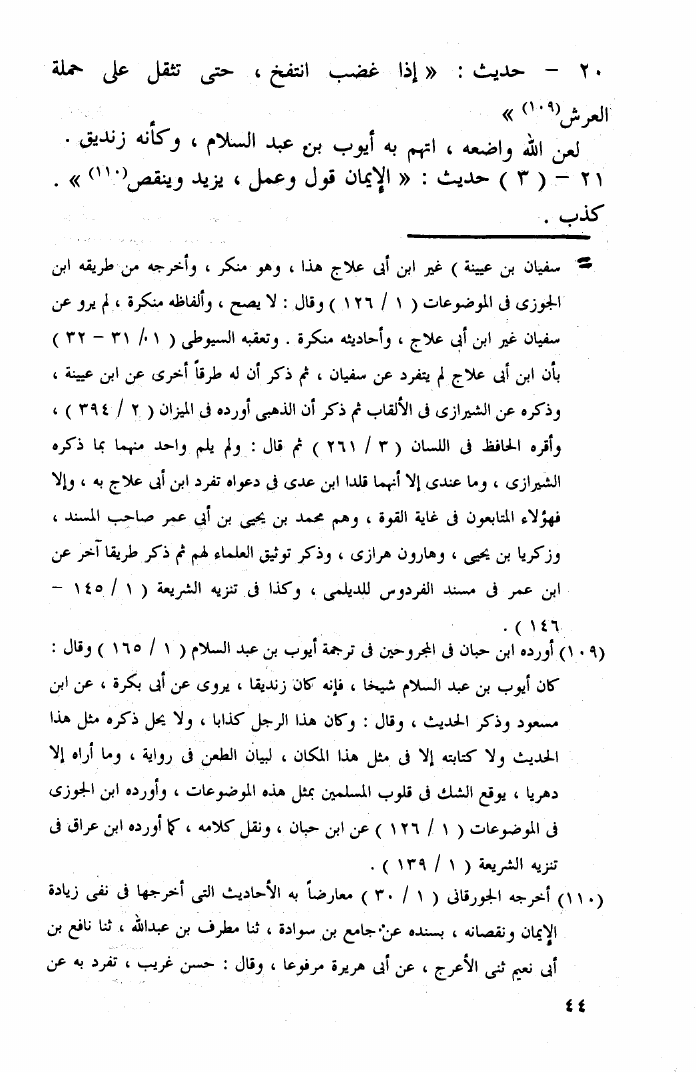 ٢٠ – حديث : « إذا غضب انتفخ ، حتى تثقل على حملة
العرش(١٠٩) »
لعن الله واضعه ، اتهم به أيوب بن عبد السلام ، وكأنه زنديق .
٢١ – ( ٣ ) حديث : « الإيمان قول وعمل ، يزيد وينقص(١١٠) » .
كذب .
= سفيان بن عيينة ) غير ابن أبى علاج هذا ، وهو منكر ، وأخرجه من طريقه ابن
الجوزى فى الموضوعات ( ١ / ١٢٦ ) وقال : لا يصح ، وألفاظه منكرة ، لم يرو عن
سفيان غير ابن أبى علاج ، وأحاديثه منكرة . وتعقبه السيوطى ( ١ / ٣١ – ٣٢ )
بأن ابن أبى علاج لم يتفرد عن سفيان ، ثم ذكر أن له طرقاً أخرى عن ابن عيينة ،
وذكره عن الشيرازى فى الألقاب ثم ذكر أن الذهبى أورده فى الميزان ( ٢ / ٣٩٤ ) ،
وأقره الحافظ فى اللسان ( ٣ / ٢٦١ ) ثم قال : ولم يلم واحد منهما بما ذكره
الشيرازى ، وما عندى إلا أنهما قلدا ابن عدى فى دعواه تفرد ابن أبى علاج به ، وإلا
فهؤلاء المتابعون فى غاية القوة ، وهم محمد بن يحيى بن أبى عمر صاحب المسند ،
وزكريا بن يحيى ، وهارون هرازى ، وذكر توثيق العلماء لهم ثم ذكر طريقا آخر عن
ابن عمر فى مسند الفردوس للديلمى ، وكذا فى تنزيه الشريعة ( ١ / ١٤٥ –
١٤٦ ) .
(١٠٩) أورده ابن حبان فى المجروحين فى ترجمة أيوب بن عبد السلام ( ١ / ١٦٥ ) وقال :
كان أيوب بن عبد السلام شيخا ، فإنه كان زنديقا ، يروى عن أبى بكرة ، عن ابن
مسعود وذكر الحديث ، وقال : وكان هذا الرجل كذابا ، ولا يحل ذكره مثل هذا
الحديث ولا كتابته إلا فى مثل هذا المكان ، لبيان الطعن فى رواية ، وما أراه إلا
دهريا ، يوقع الشك فى قلوب المسلمين بمثل هذه الموضوعات ، وأورده ابن الجوزى
فى الموضوعات ( ١ / ١٢٦ ) عن ابن حبان ، ونقل كلامه ، كما أورده ابن عراق فى
تنزيه الشريعة ( ١ / ١٣٩ ) .
(١١٠) أخرجه الجورقانى ( ١ / ٣٠ ) معارضاً به الأحاديث التى أخرجها فى نفى زيادة
الإيمان ونقصانه ، بسنده عن جامع بن سوادة ، ثنا مطرف بن عبدالله ، ثنا نافع بن
أبى نعيم ثنى الأعرج ، عن أبى هريرة مرفوعا ، وقال : حسن غريب ، تفرد به عن
٤٤